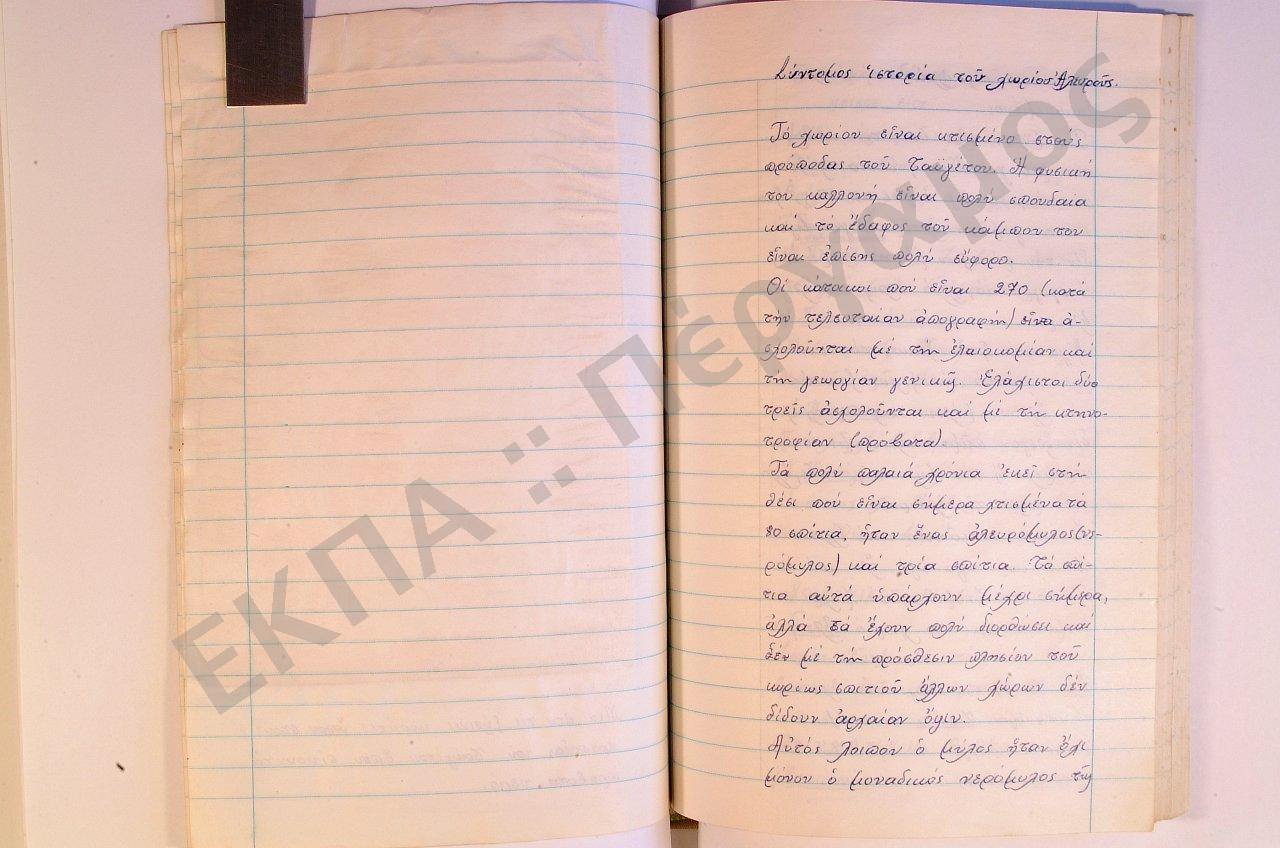 Σύντομος ἱστορία τοῦ χωρίου Ἀλευροῦς.
Τό χωρίον εἶναι κτισμένο στούς
πρόποδας τοῦ Ταϋγέτου. Ἡ φυσική
του καλλονή εἶναι πολύ σπουδαία
καί τό ἔδαφος τοῦ κάμπου του
εἶναι ἐπίσης πολύ εὔφορο.
Οἱ κάτοικοι πού εἶναι 270 (κατά
τήν τελευταίαν ἀπογραφήν) ἀ-
σχολοῦνται μέ τήν ἐλαιοκομίαν καί
τήν γεωργίαν γενικῶς. Ἐλάχιστοι δύο
τρεῖς ἀσχολοῦνται καί μέ τήν κτηνο-
τροφίαν (πρόβατα).
Τά πολύ παλαιά χρόνια ἐκεῖ στήν
θέσι πού εἶναι σήμερα χτισμένα τά
80 σπίτια, ἦταν ἕνας ἀλευρόμυλος (νε-
ρόμυλος) καί τρία σπίτια. Τά σπί-
τια αὐτά ὑπάρχουν μέχρι σήμερα,
ἀλλά τά ἔχουν πολύ διορθώσει καί
μέ τήν πρόσθεσιν πλησίον τοῦ
κυρίως σπιτιοῦ ἄλλων χώρων δέν
δίδουν ἀρχαίαν ὄψιν.
Αὐτός λοιπόν ὁ μύλος ἦταν ὄχι
μόνον ὁ μοναδικός νερόμυλος τῆς
ΕΚΠΑ :: Πέργαμος